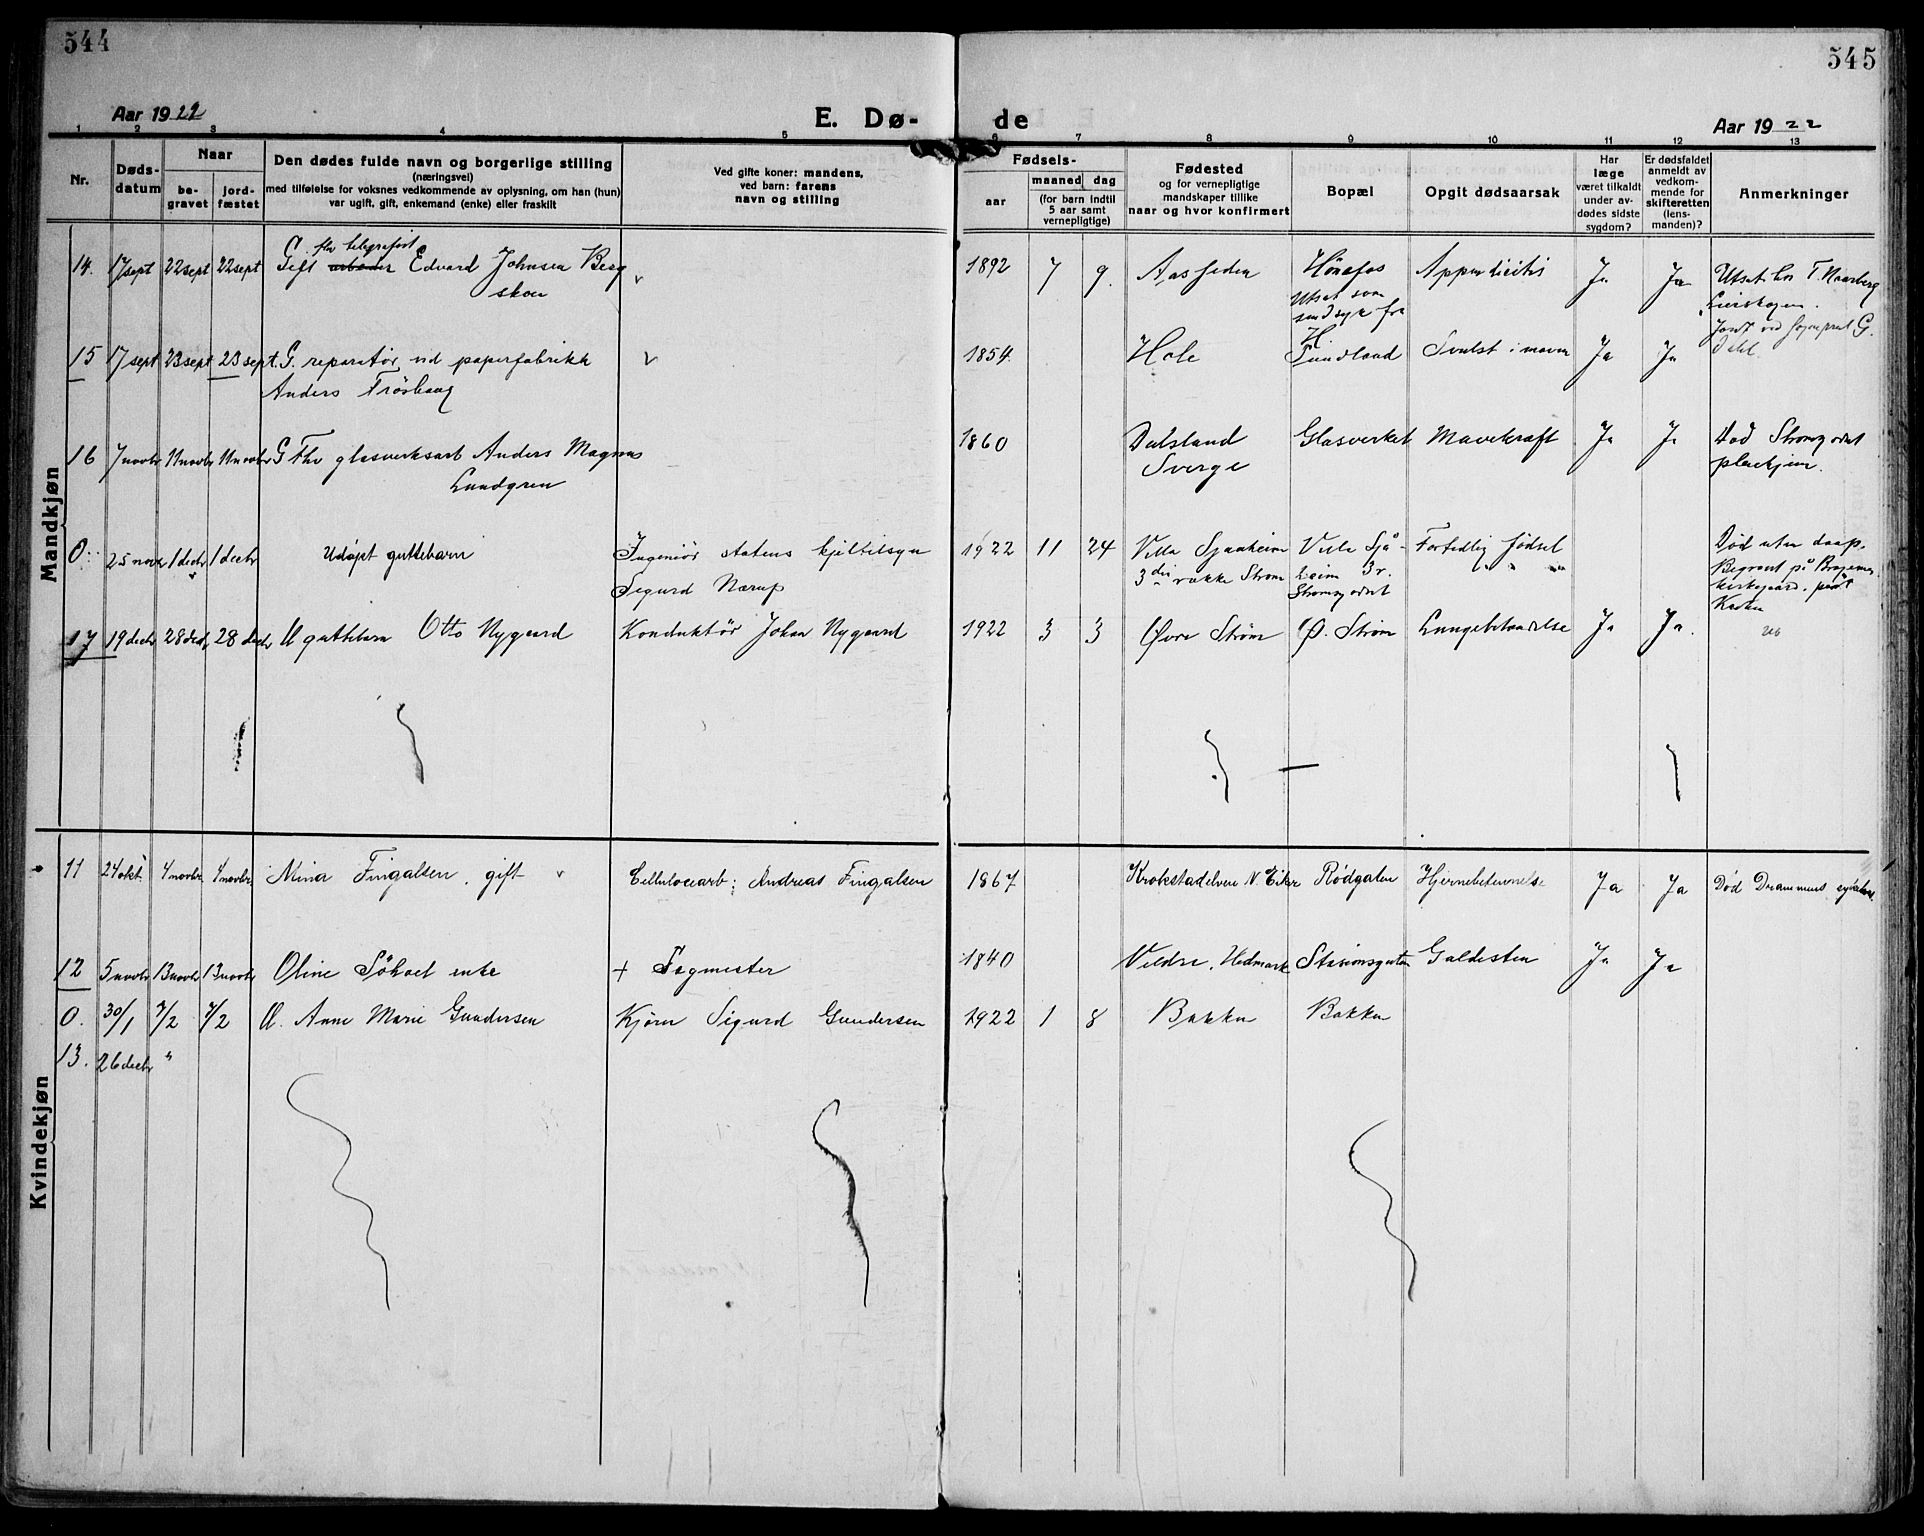 544
545
Aar 1922
E. Dø-
de
Aar 1922
1 2 3 4 5 6 7 8 9 10 11 12 13
Nr.
Døds-
datum
Naar
be-
gravet
jord-
fæstet
Den dødes fulde navn og borgerlige stilling
(næringsvei)
med tilføielse for voksnes vedkommende av oplysning, om han (hun)
var ugift, gift, enkemand (enke) eller fraskilt
Ved gifte koner: mandens,
ved barn: farens
navn og stilling
Fødsels-
aar
maaned
dag
(for barn indtil
5 aar samt
vernepligtige)
Fødested
og for vernepligtige
mandskaper tillike
naar og hvor konfirmert
Bopæl
Opgit dødsaarsak
Har
læge
været tilkaldt
under av-
dødes sidste
sygdom?
Er dødsfaldet
anmeldt av
vedkom-
mende for
skifteretten
(lens-
manden)?
Anmerkninger
Mandkjøn
fhv telegrafist
14. 17 sept 22 sept 22 sept Gift arbeider Edvard Johnsen Berg
skou
1892 7 9. Aasheden Hönefos Appendicitis Ja Ja
Utsat som
sindsyk fra
H.
Utsat hos T. Naarberg
Lierskogen.
Jordf ved sogneprest G.
Dahl.
15 17 sept 23 sept 23 sept. G. reparatør ved paperfabrikk
Anders Frøshaug
1854. Hole Sundland Svulst i maven Ja Ja
16 7 novbr 11 novbr 11 novbr G Fhv glasverksarb Anders Magnus
Lundgren
1860 Dalsland Glasverket Mavekræft Ja Ja
Sverge
Död Strømsgodset
pleiehjem.
0. 25 novbr 1 decbr 1 decbr Udøpt guttebarn Ingeniør statens kjeltilsyn
Sigurd Nærup
1922 11 24 Villa Sjaaheim Villa Sjå- Fortidlig födsel
3die række Strøm heim 3 r.
Strømsgodset
Død uten daap.
Begravet på Bragernes
kirkegaard. prost
17 19 decbr 28 decbr 28 decbr U guttebarn Otto Nygaard Konduktør Johan Nygaard
1922 3 3 Øvre Strøm Ø. Strøm Lungebetændelse Ja Ja.
Kvindekjøn
11 24 okt. 4 novbr. 4 novbr. Mina Fingalsen, gift Cellulosearb: Andreas Fingalsen
1867 Krokstadelven N. Eiker Rødgaten Hjernebetennelse Ja Ja Død Drammens sykehus
12 5 novbr 13 novbr 13 novbr Oline Søhoel enke + Sagmester
1840 Veldre, Hedmark Stasionsgaten Galdesten Ja Ja
0. 30/1 7/2 7/2 U. Anne Marie Gundersen Kjører Sigurd Gundersen
1922 1 8 Bakke Bakke
13. 26 decbr "